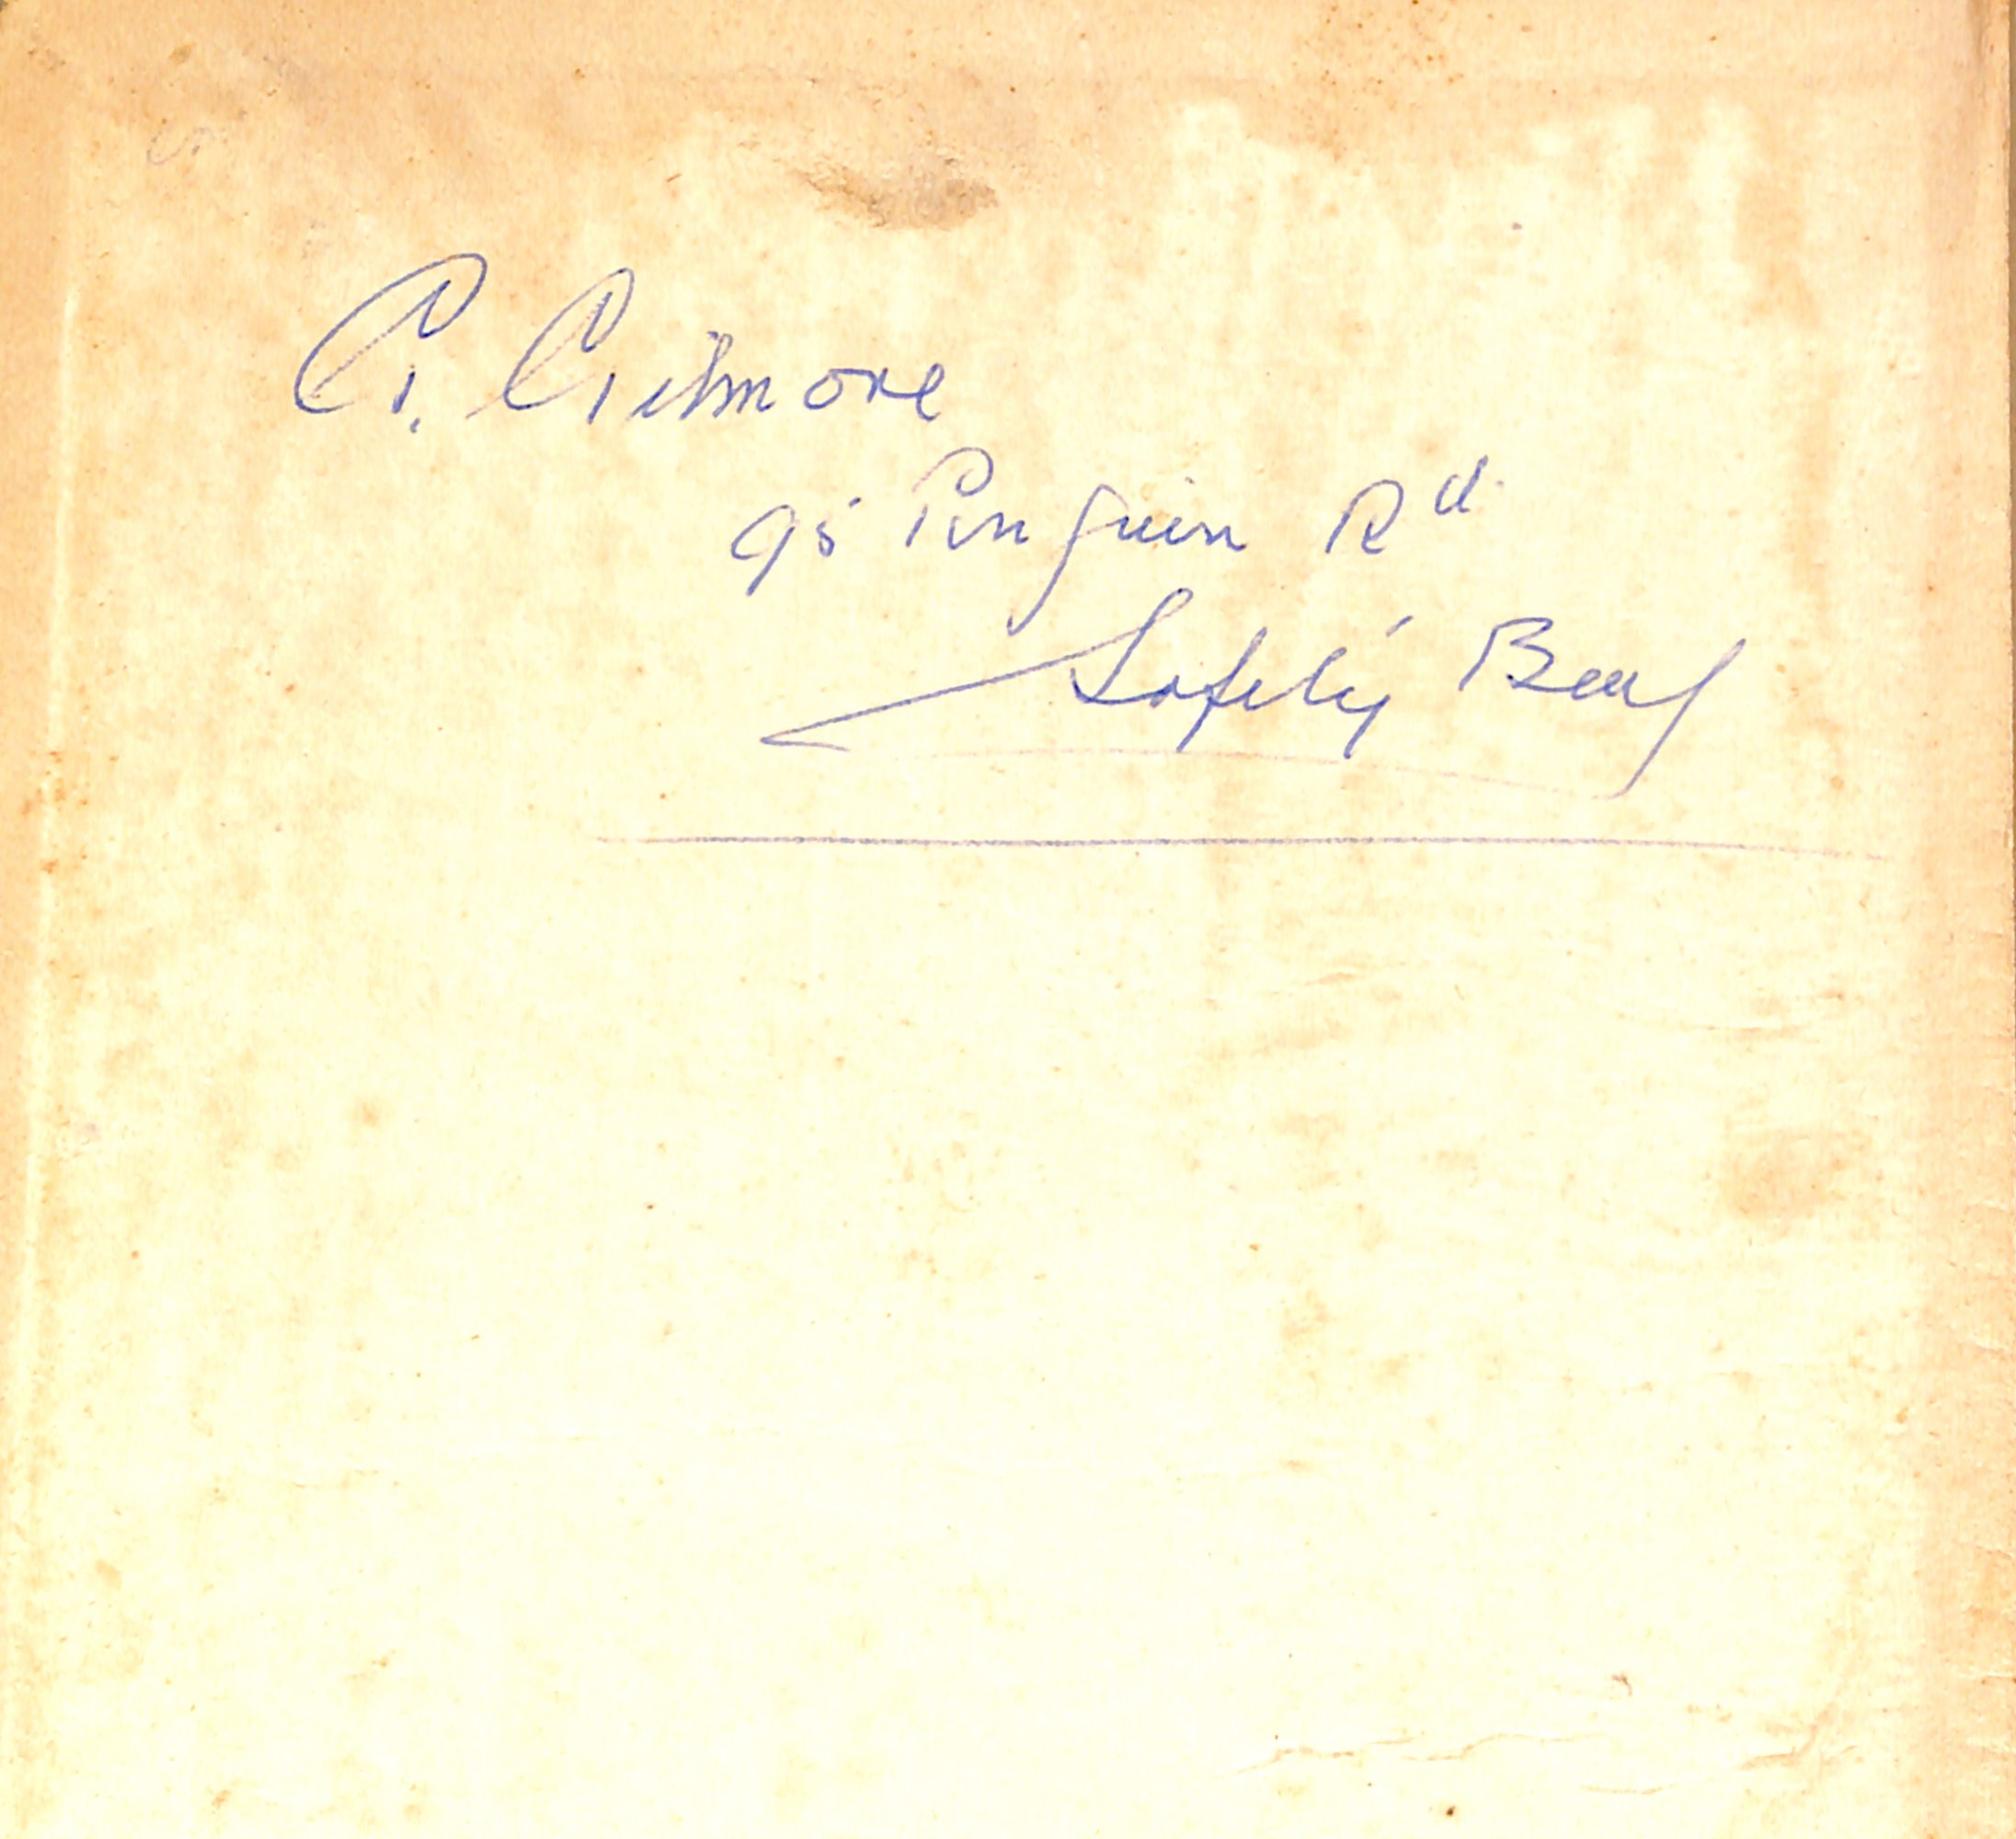 G. Gilmore
95 Penguin Rd.
Safety Bay